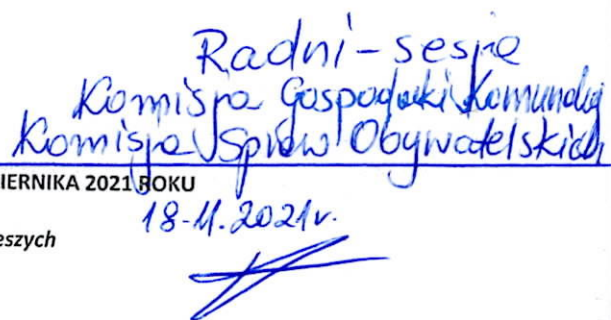 Radni - sesja
Komisja Gospodarki Komunalnej
Komisja Spraw Obywatelskich
IERNIKA 2021 ROKU
18-11.2021r.
eszych